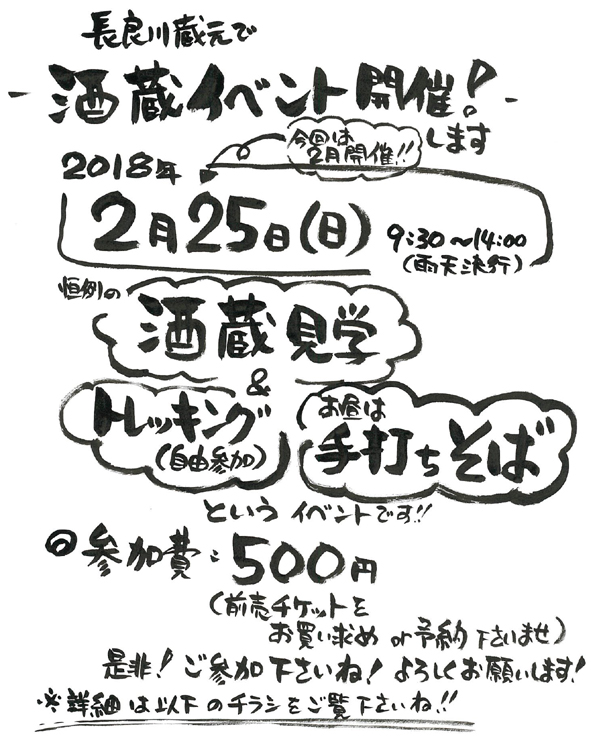 長良川蔵元で
酒蔵イベント開催!
します
今回は
2月開催!!
2018年
2月25日(日)
9:30~14:00
(雨天決行)
恒例の
酒蔵見学
&
トレッキング
(自由参加)
お昼は
手打ちそば
というイベントです!!
◎参加費:500円
(前売チケットを
お買い求めor予約下さいませ)
是非!ご参加下さいね!よろしくお願いします!
※詳細は以下のチラシをご覧下さいね!!